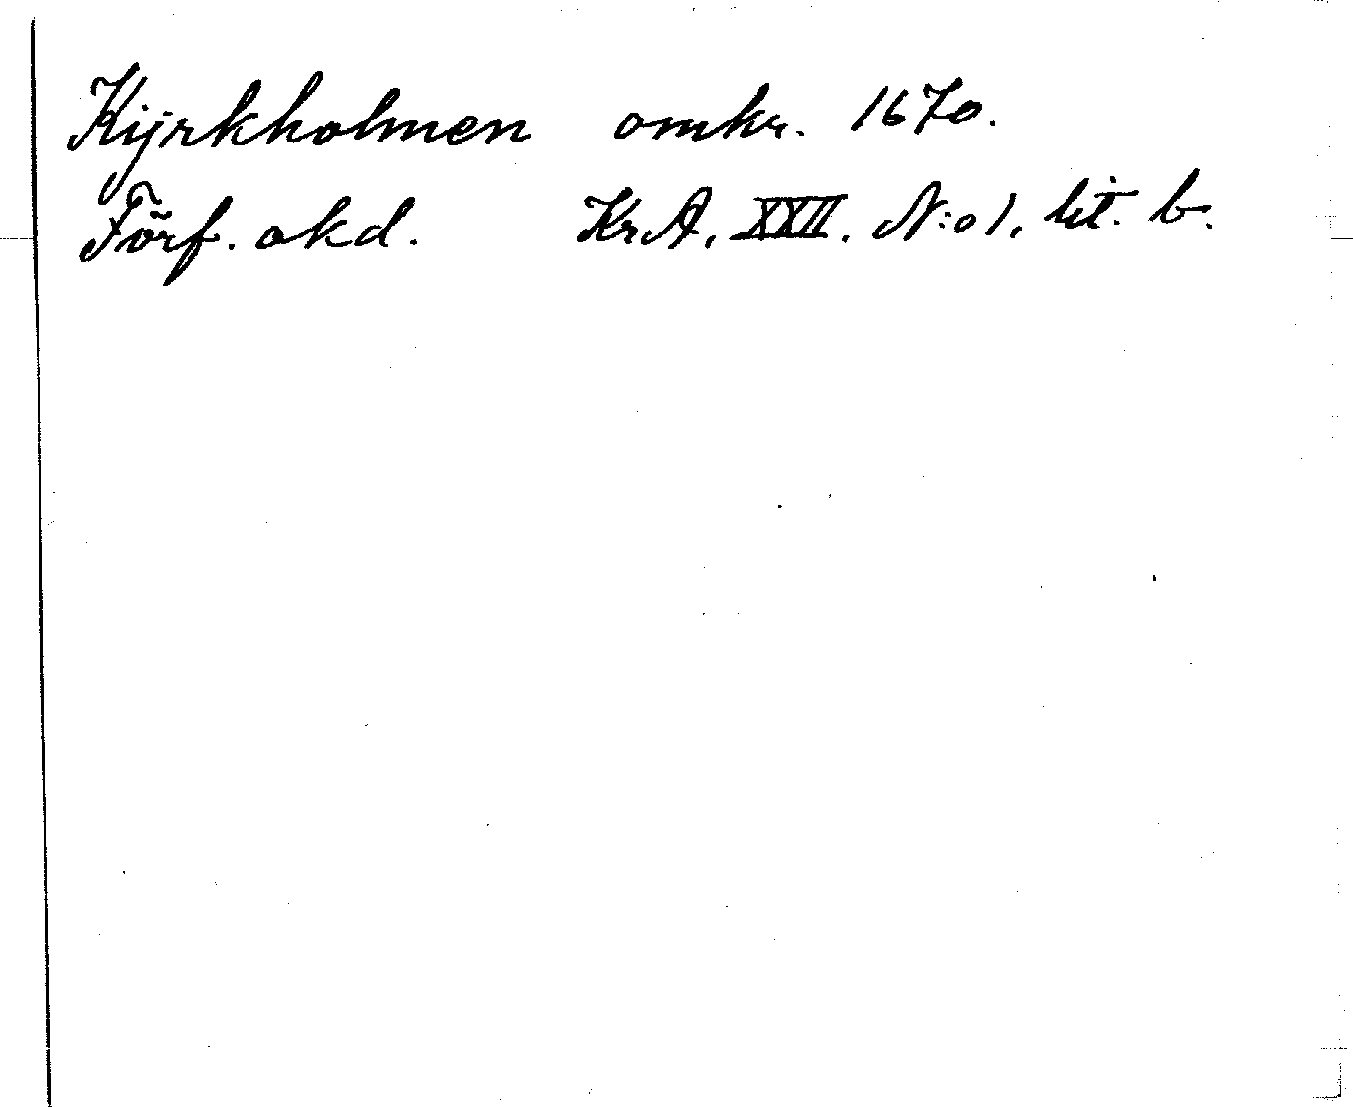 Kijrkholmen omkr. 1670.
Förf. okd. KrA, XXII. N:o 1, lit. b.